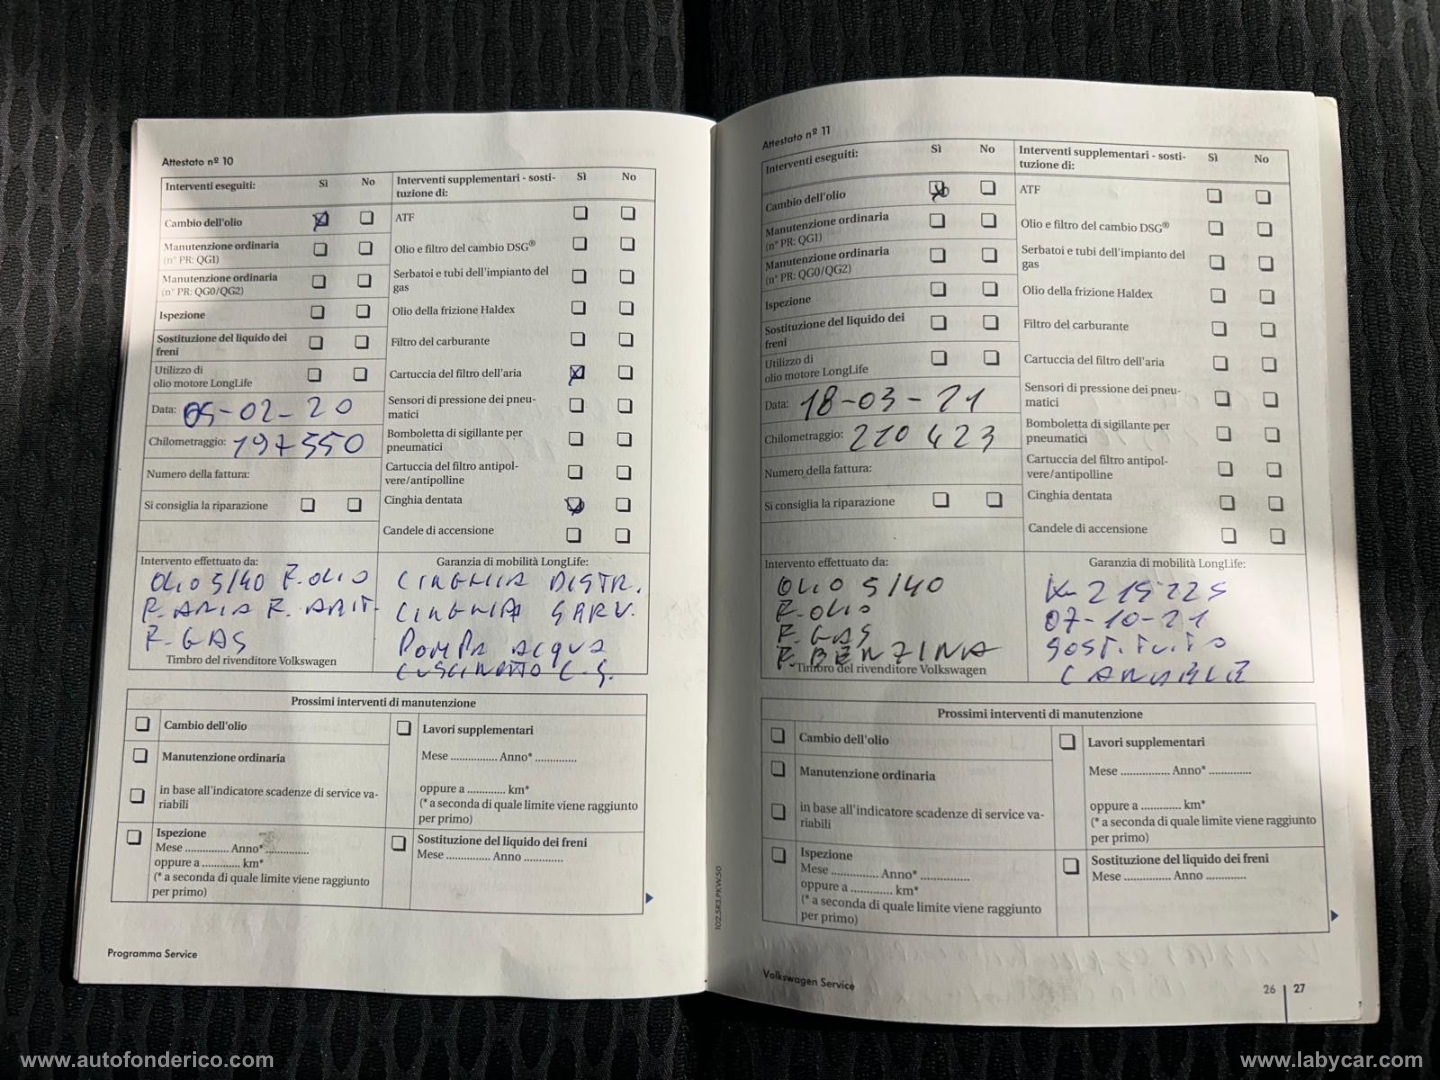 Attestato nº 10
Interventi eseguiti: Sì No
Cambio dell'olio
Manutenzione ordinaria
(n° PR: QG1)
Manutenzione ordinaria
(n° PR: QG0/QG2)
Ispezione
Sostituzione del liquido dei
freni
Utilizzo di
olio motore LongLife
Data: 05-02-20
Chilometraggio: 197550
Numero della fattura:
Si consiglia la riparazione
Interventi supplementari - sosti-
tuzione di: Sì No
ATF
Olio e filtro del cambio DSG®
Serbatoi e tubi dell'impianto del
gas
Olio della frizione Haldex
Filtro del carburante
Cartuccia del filtro dell'aria
Sensori di pressione dei pneu-
matici
Bomboletta di sigillante per
pneumatici
Cartuccia del filtro antipol-
vere/antipolline
Cinghia dentata
Candele di accensione
Intervento effettuato da:
OLIO 5/40 F. OLIO
F. ARIA F. ABIT.
F. GAS
Timbro del rivenditore Volkswagen
Garanzia di mobilità LongLife:
CINGHIA DISTR.
CINGHIA SERV.
POMPA ACQUA
CUSCINETTO C.S.
Prossimi interventi di manutenzione
Cambio dell'olio
Manutenzione ordinaria
in base all'indicatore scadenze di service va-
riabili
Ispezione
Mese ............... Anno* ...............
oppure a ............. km*
(* a seconda di quale limite viene raggiunto
per primo)
Lavori supplementari
Mese ............... Anno* ...............
oppure a ............. km*
(* a seconda di quale limite viene raggiunto
per primo)
Sostituzione del liquido dei freni
Mese ............... Anno ...............
Programma Service
Attestato nº 11
Interventi eseguiti: Sì No
Cambio dell'olio
Manutenzione ordinaria
(n° PR: QG1)
Manutenzione ordinaria
(n° PR: QG0/QG2)
Ispezione
Sostituzione del liquido dei
freni
Utilizzo di
olio motore LongLife
Data: 18-03-21
Chilometraggio: 210423
Numero della fattura:
Si consiglia la riparazione
Interventi supplementari - sosti-
tuzione di: Sì No
ATF
Olio e filtro del cambio DSG®
Serbatoi e tubi dell'impianto del
gas
Olio della frizione Haldex
Filtro del carburante
Cartuccia del filtro dell'aria
Sensori di pressione dei pneu-
matici
Bomboletta di sigillante per
pneumatici
Cartuccia del filtro antipol-
vere/antipolline
Cinghia dentata
Candele di accensione
Intervento effettuato da:
OLIO 5/40
F. OLIO
F. GAS
F. BENZINA
Timbro del rivenditore Volkswagen
Garanzia di mobilità LongLife:
K 215225
07-10-21
SOSTITUITO
CANDELE
Prossimi interventi di manutenzione
Cambio dell'olio
Manutenzione ordinaria
in base all'indicatore scadenze di service va-
riabili
Ispezione
Mese ............... Anno* ...............
oppure a ............. km*
(* a seconda di quale limite viene raggiunto
per primo)
Lavori supplementari
Mese ............... Anno* ...............
oppure a ............. km*
(* a seconda di quale limite viene raggiunto
per primo)
Sostituzione del liquido dei freni
Mese ............... Anno ...............
102.5R3.PKW.50
Volkswagen Service
26 | 27
www.autofonderico.com
www.labycar.com